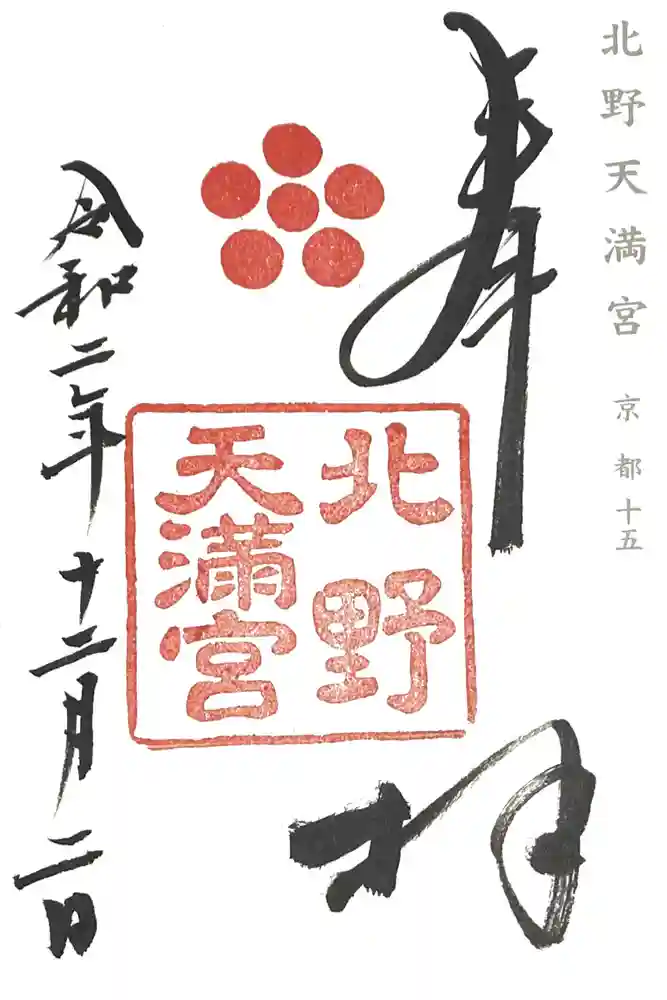 北野天満宮 京都十五
奉拝
北野
天満宮
令和二年十二月二日